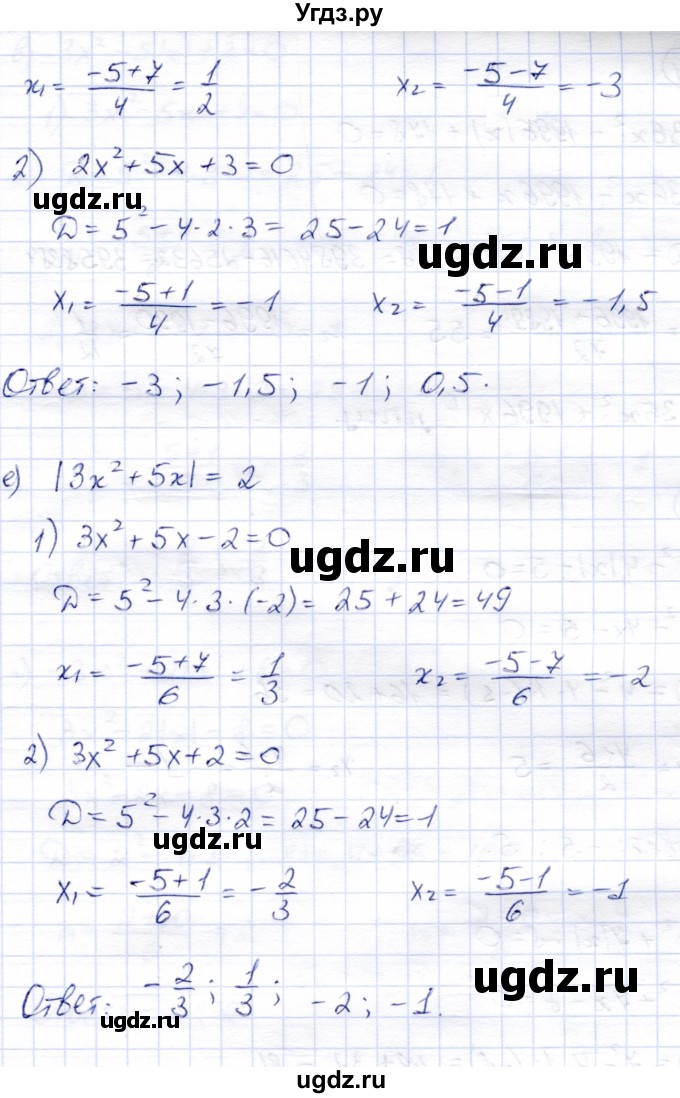 Угдз.ру
x₁ = (-5+7)/4 = 1/2    x₂ = (-5-7)/4 = -3
2) 2x² + 5x + 3 = 0
ugdz.ru
D = 5² - 4·2·3 = 25 - 24 = 1
ugdz.ru
x₁ = (-5+1)/4 = -1    x₂ = (-5-1)/4 = -1,5
Ответ: -3; -1,5; -1; 0,5.
e) |3x² + 5x| = 2
1) 3x² + 5x - 2 = 0
ugdz.ru
D = 5² - 4·3·(-2) = 25 + 24 = 49
x₁ = (-5+7)/6 = 1/3    x₂ = (-5-7)/6 = -2
2) 3x² + 5x + 2 = 0
D = 5² - 4·3·2 = 25 - 24 = 1
ugdz.ru
x₁ = (-5+1)/6 = -2/3    x₂ = (-5-1)/6 = -1
ugdz.ru
Ответ: -2/3; 1/3; -2; -1.
ugdz.ru
ugdz.ru